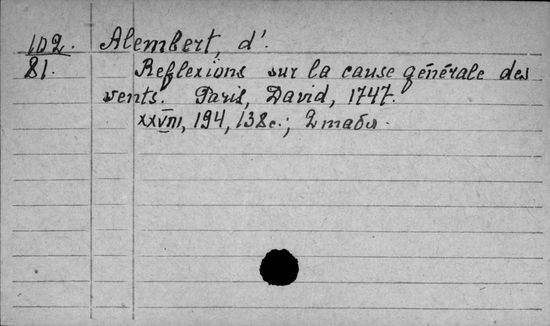 102. Alembert, d'.
81. Reflexions sur la cause générale des
vents. Paris, David, 1747.
XXVIII, 194, 138 с.; 2 табл.